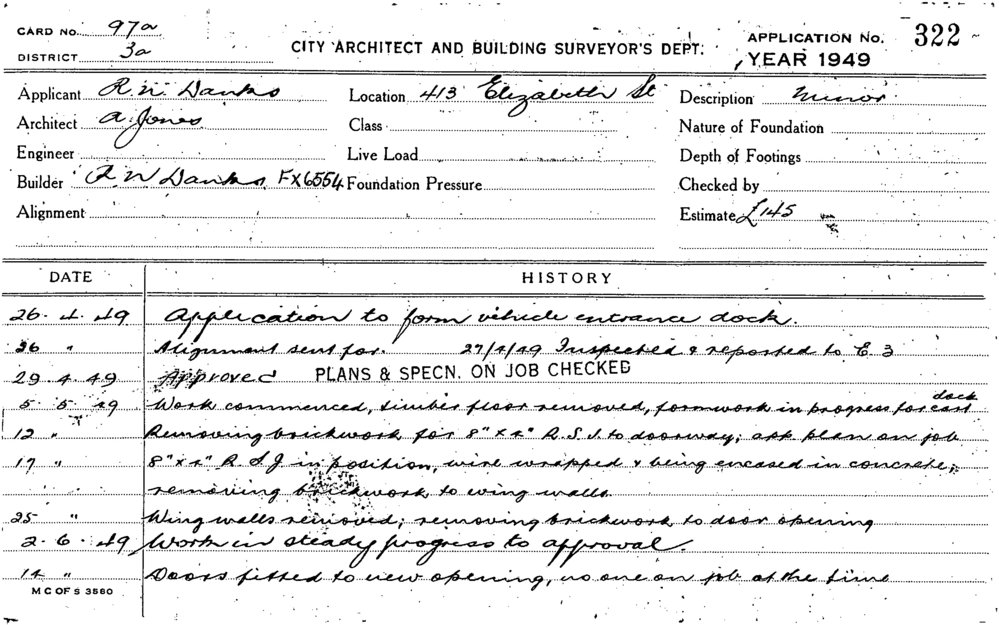 CARD No. 97a
DISTRICT 3a
CITY ARCHITECT AND BUILDING SURVEYOR'S DEPT.
APPLICATION No. 322
YEAR 1949
Applicant R. N. Danks
Location 413 Elizabeth St
Description Minor
Architect A. Jones
Class
Nature of Foundation
Engineer
Live Load
Depth of Footings
Builder R N Danks FX6554
Foundation Pressure
Checked by
Alignment
Estimate £145
DATE HISTORY
26. 4. 49 Application to form vehicle entrance dock.
26 " Alignment sent for. 27/4/49 Inspected & reported to E. 3
29. 4. 49 Approved PLANS & SPECN. ON JOB CHECKED
dock
5. 5. 49 Work commenced, timber floor removed, formwork in progress for cast
12 " Removing brickwork for 8" x 4" R.S.J. to doorway; app. plan on job
17 " 8" x 4" R S J in position, wire wrapped & being encased in concrete;
removing brickwork to wing walls.
25 " Wing walls removed; removing brickwork to door opening
2. 6. 49 Work in steady progress to approval.
14 " Doors fitted to new opening, no one on job at the time
M C OF S 3580